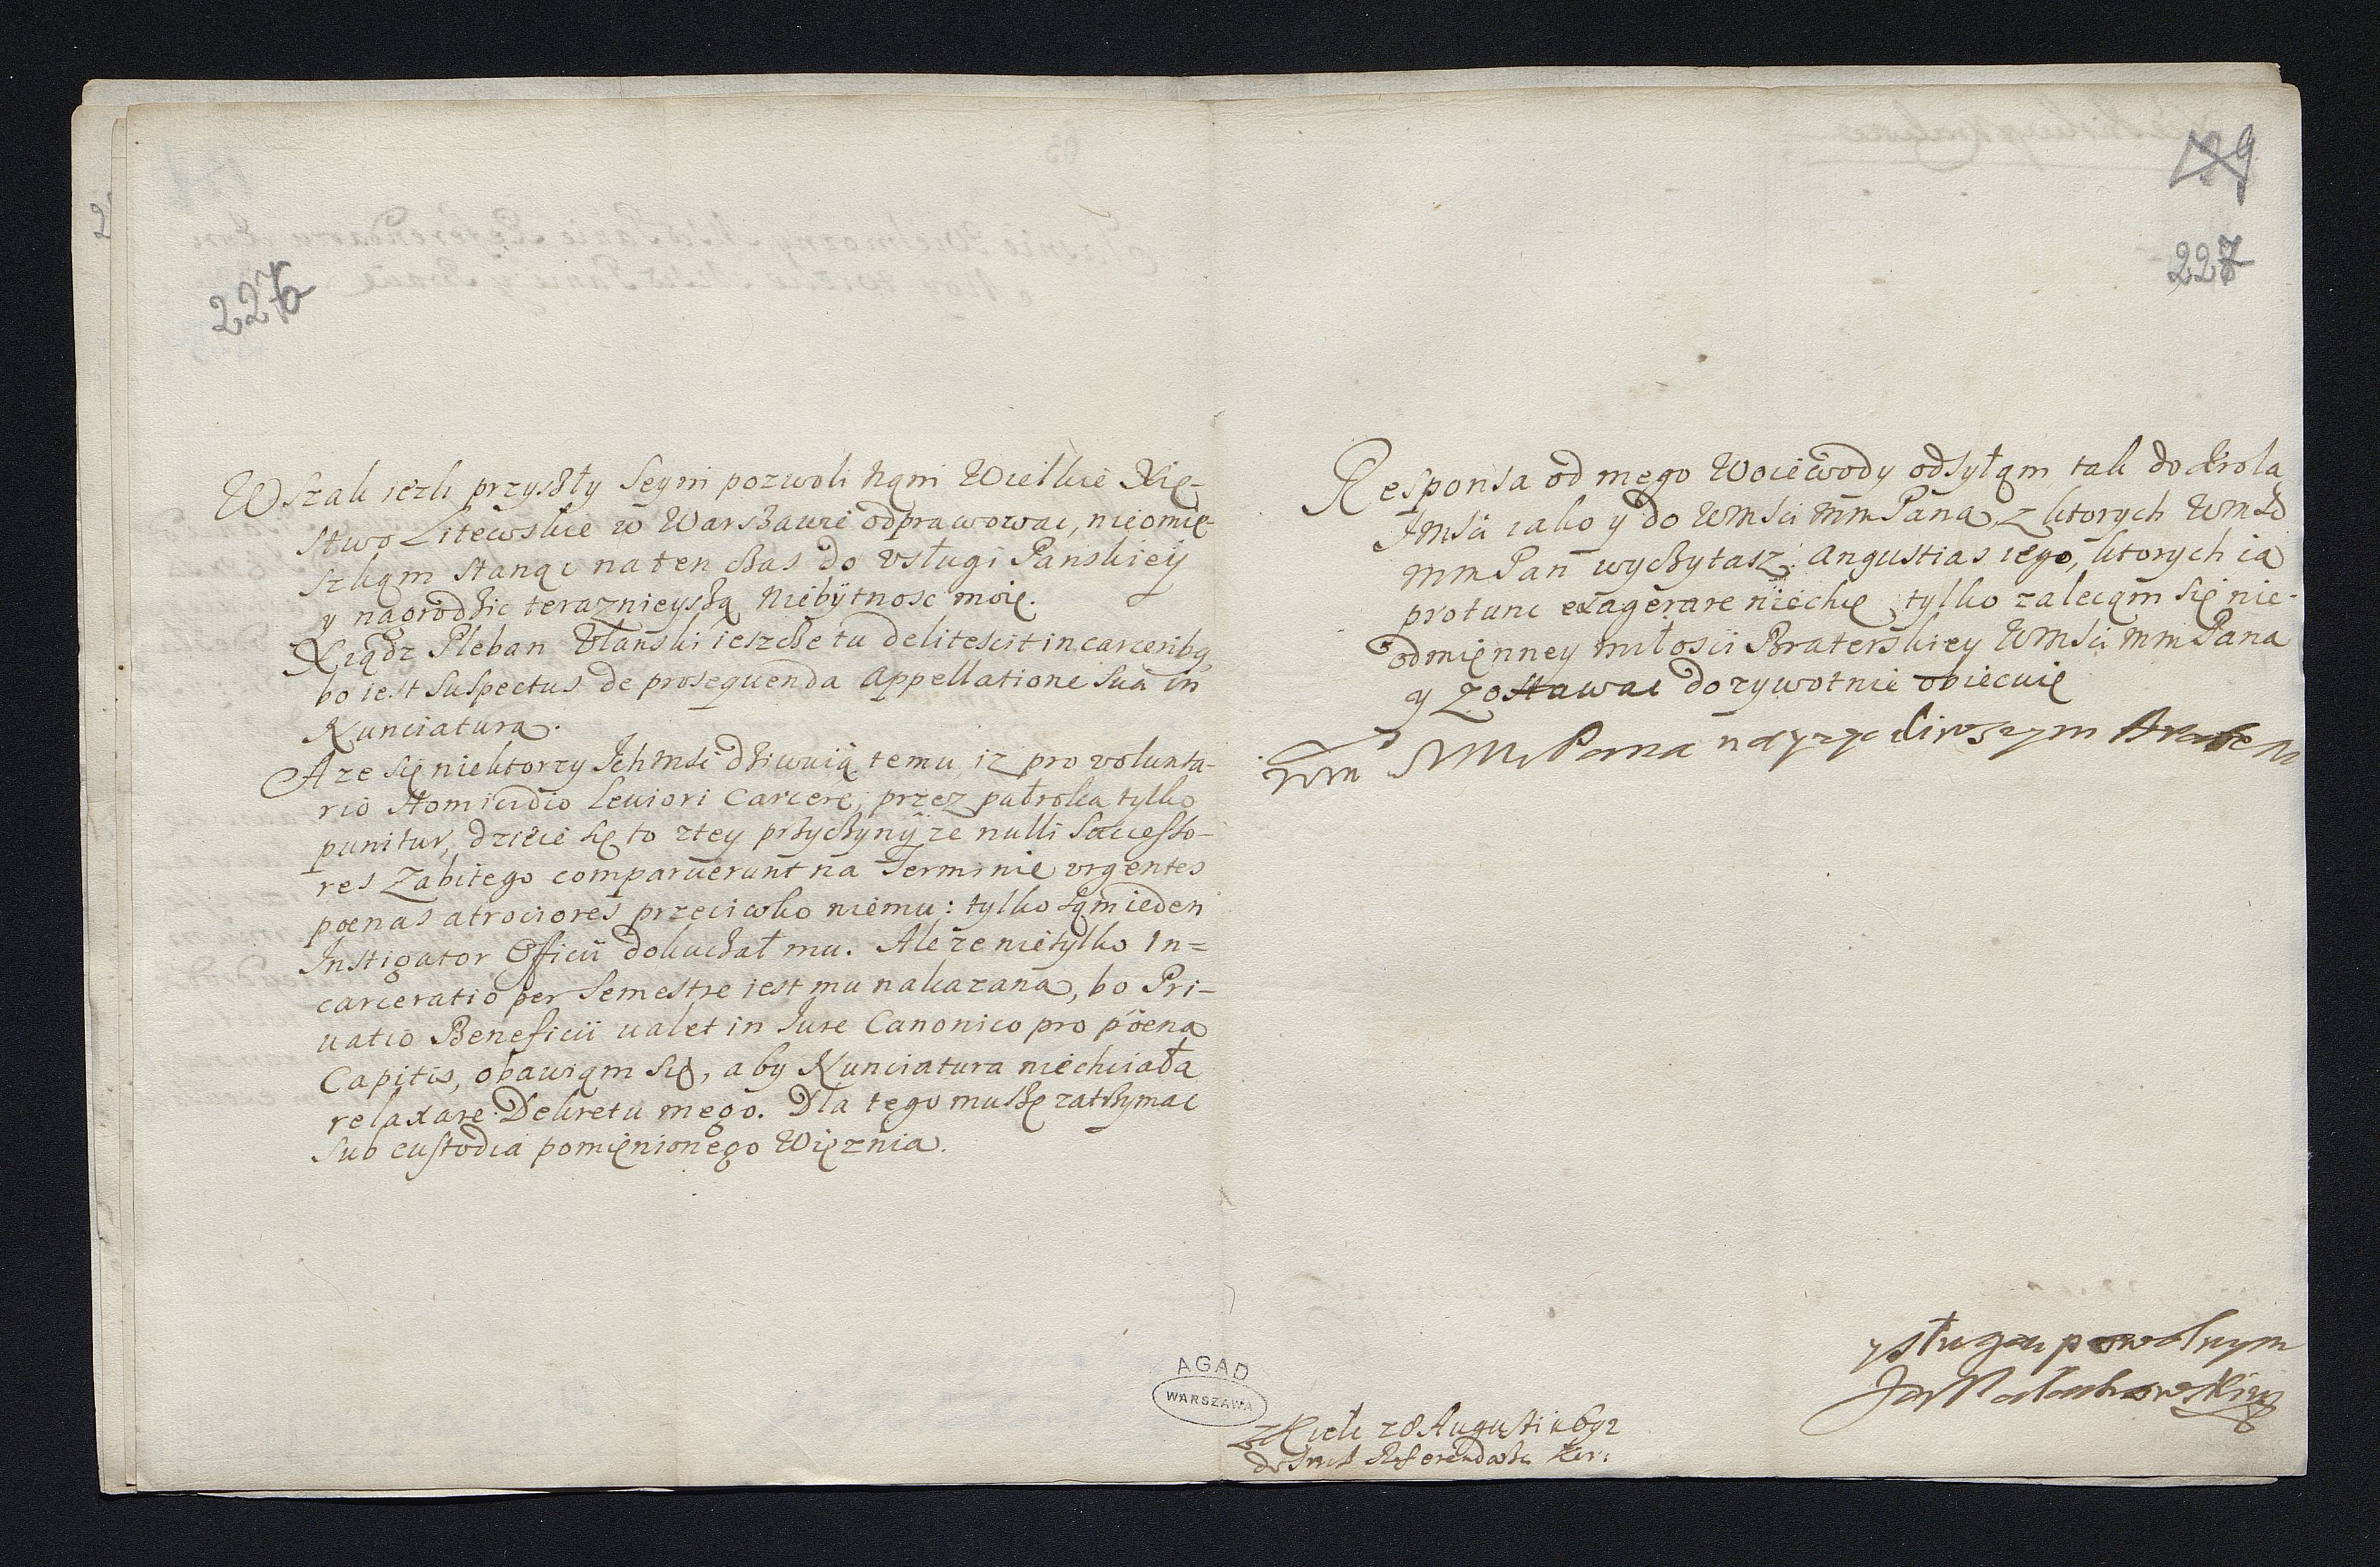 226
Wszak iezli przyszły Seym pozwoli nąm Wielkie Xię-
stwo Litewskie w Warszawie odprawowac, nieomie-
szkąm stanąc na ten czas do vsługi Panskiey
y nagrodzic teraznieyszą niebytnosc moię.
Xiądz Pleban Vłanski ieszcze tu delitescit in carceribq,
bo iest suspectus de prosequenda Appellatione sua in
Nunciatura.
A ze się niektorzy Ichmsc dziwuią temu, iz pro volunta-
rio Homicidio leuiori Carcere, przez pułroka tylko
punitur, dzieie się to ztey przyczyny ze nulli Successo-
res Zabitego comparuerunt na Terminie vrgentes
poenas atrociores przeciwko niemu: tylko sąm ieden
Instigator Officii dokuczał mu. Ale ze nietylko In=
carceratio per Semestre iest mu nakazana, bo Pri-
uatio Beneficii ualet in Iure Canonico pro poena
Capitis, obawiąm się, aby Nunciatura niechciała
relaxare Dekretu mego. Dla tego muszę zatrzymac
sub custodia pomięnionego Więznia.
AGAD
WARSZAWA
199
227
Responsa od mego Woiewody odsyłąm tak do Krola
Jmsci iako y do WMsci MmPana, z ktorych WmSc
MmPan wyczytasz angustias iego, ktorych ia
protunc exagerare niechcę, tylko zalecąm się nie-
odmięnney miłosci Braterskiey WMsci MmPana
y zostawac dozywotnie obiecuię
Wm MMPana nayzycliwszym Bratem
y sługą powolnym
Jan Małachowski
z Kielc 28 Augusti 1692
do Jmci Referendarza Kor: